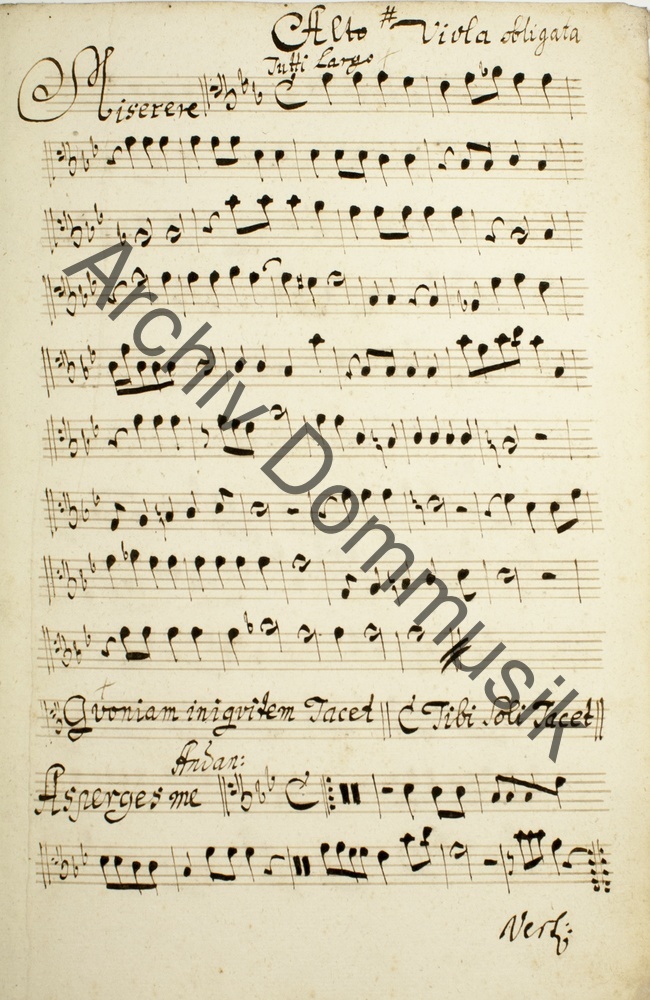 Alto # Viola obligata
Tutti Largo
Miserere
Quoniam iniquitem Tacet || Et Tibi Soli Tacet ||
Andan:
Asperges me
Archiv Dommusik